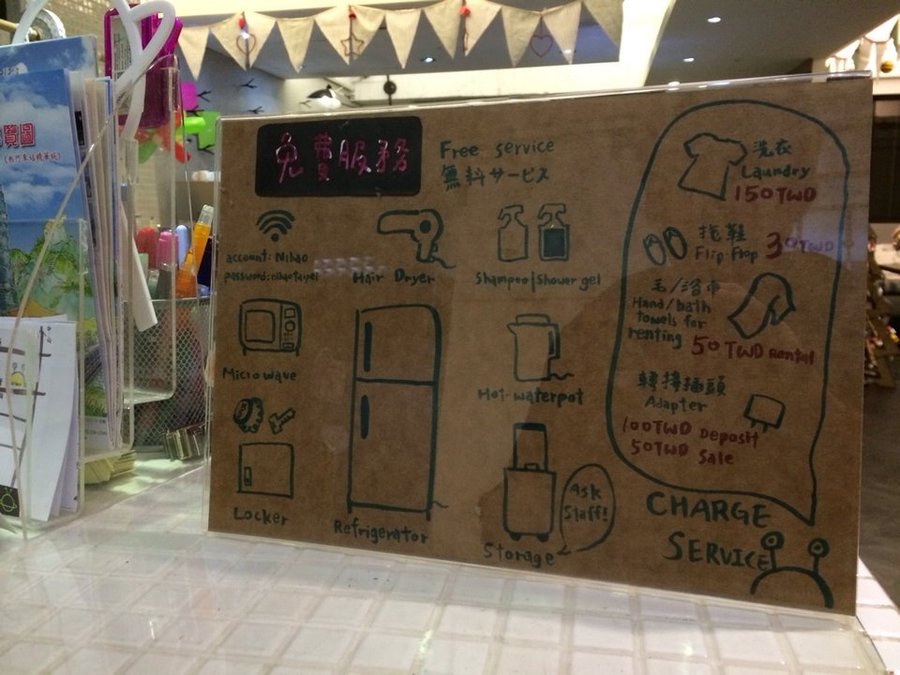 覽圖
免費服務
Free service
無料サービス
account: Nihao
password: nihaotaipei
Hair Dryer
Shampoo/Shower gel
Microwave
Hot waterpot
Locker
Refrigerator
Storage
Ask
Staff!
洗衣
Laundry
150TWD
拖鞋
Flip Flop 30TWD
毛/浴巾
Hand/bath
towels for
renting
50 TWD Rental
轉接插頭
Adapter
100TWD Deposit
50TWD Sale
CHARGE
SERVICE